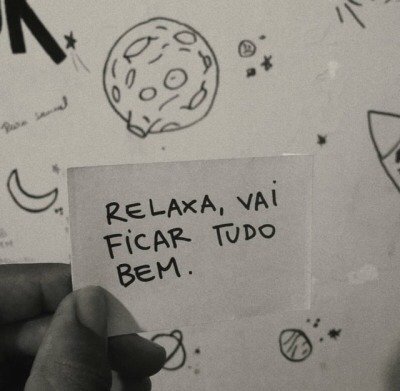 RELAXA, VAI
FICAR TUDO
BEM.